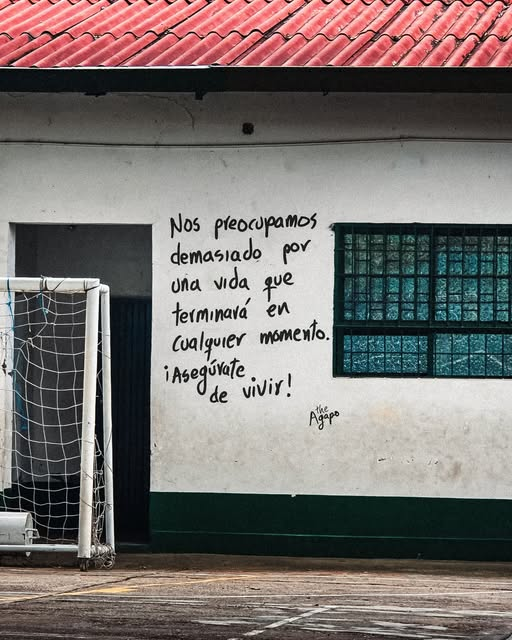 Nos preocupamos
demasiado por
una vida que
terminará en
cualquier momento.
¡Asegúrate
de vivir!
the
Agapo